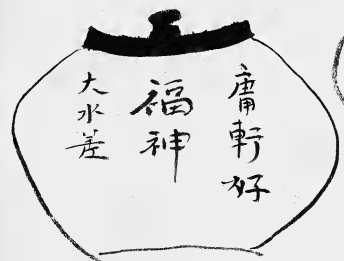 庸軒好
福神
大水差